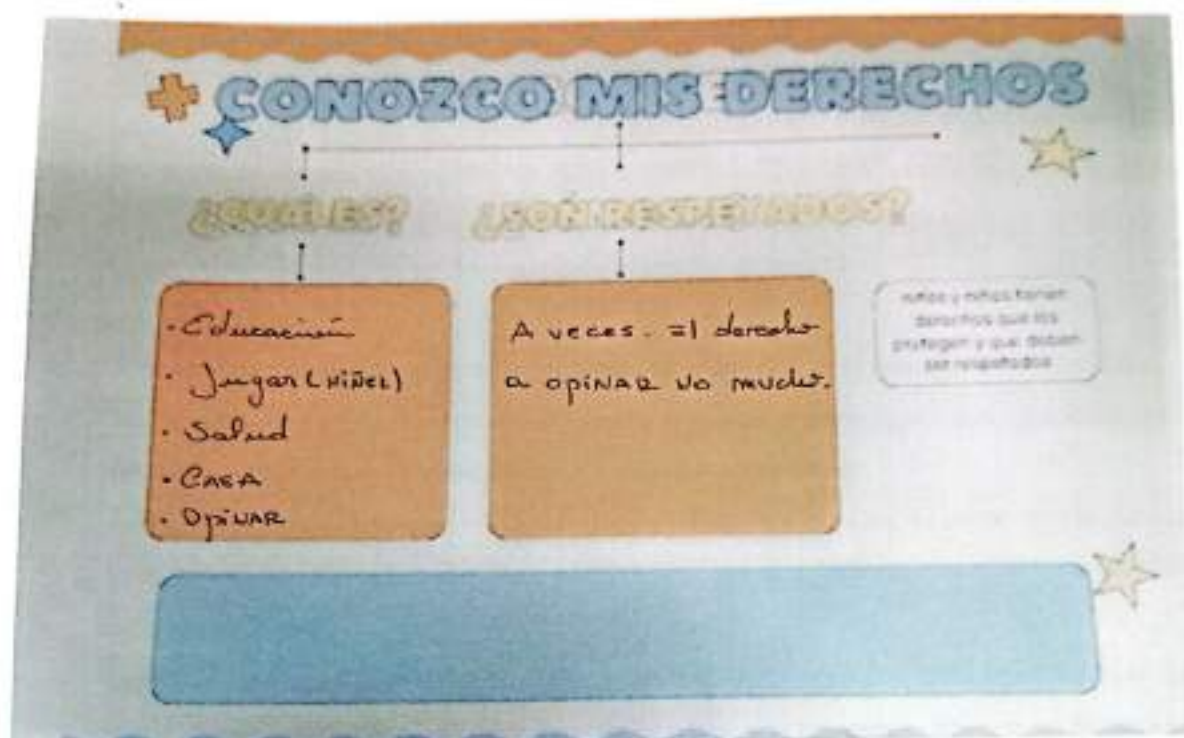 CONOZCO MIS DERECHOS
¿CUÁLES?
¿SON RESPETADOS?
· Educación
· Jugar (niñez)
· Salud
· CASA
· OpiNAR
A veces. El derecho
a opiNAR No mucho.
niños y niñas tienen
derechos que los
protegen y que deben
ser respetados